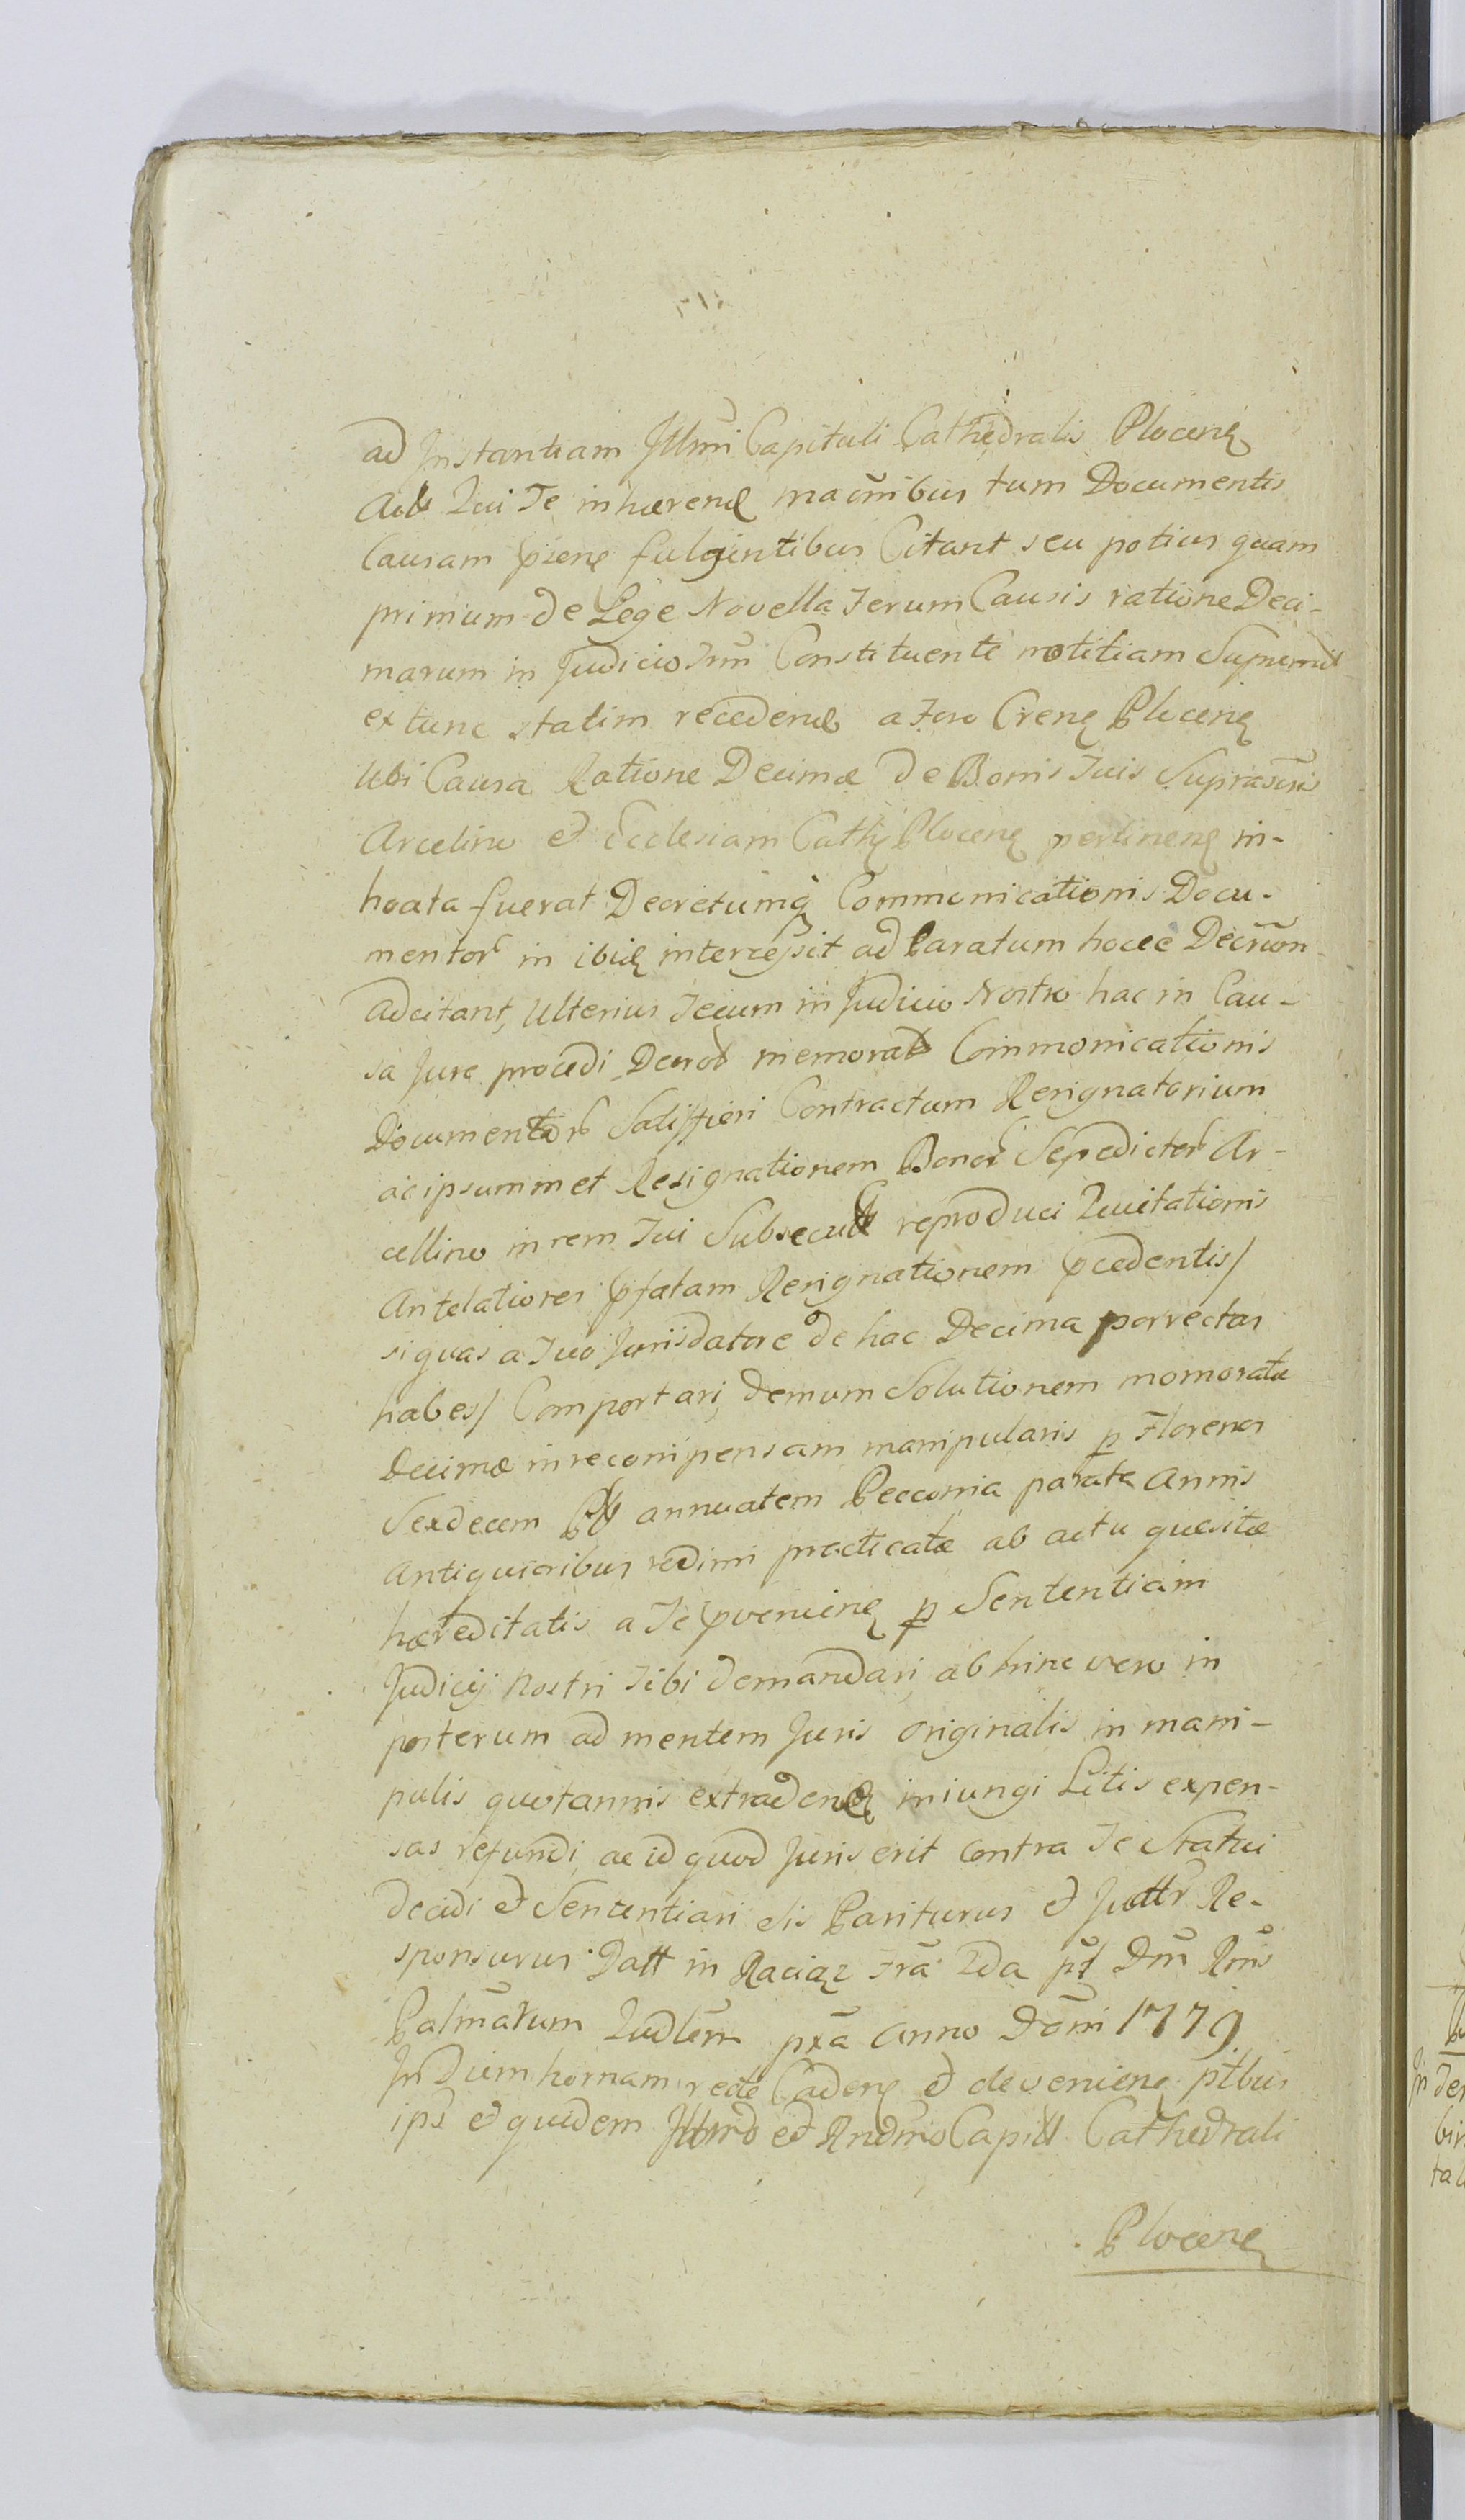 ad Instantiam Illmi Capituli Cathedralis Plocen
Act Qui Te inhæren muniibus tum Documentis
Causam hanc fulcientibus Citant seu potius quam
primum de Lege Novella Terum Causis ratione Deci-
marum in Judicio Trni Constituente notitiam
ex tunc statim recedend a Foro Cren Plocen
Ubi Causa Ratione Decimæ de Bonis Tuis Suprascris
Arcelino et Ecclesiam Cath Plocen pertinen in-
hoata fuerat Decretumq Communicationis Docu-
mentor in ibid intercessit ad Paratum hocce Decrum
adcitant, Ulterius Tecum in Judicio Nostro hac in Cau-
sa Jure procedi Decret memorat Commonicationis
Documentor Satisfieri Contractum Resignatorium
ac ipsummet Resignationem Bonor Sepedictor Ar-
cellino in rem Tui Subsecut reproduci Quietationis
Antelatiores pfatam Resignationem pcedentis/
siquas a Tuo Jurisdatore de hac Decima porrectas
habes/ Comportari, demum Solutionem momoratæ
Decimæ in recompensam manipularis p Florenos
Sexdecem Pl annuatem Peccunia parata Annis
Antiquioribus redimi practicatæ ab actu quesitæ
hæreditatis a Te pvenien p Sententiam
Judicij Nostri Tibi demandari, abhinc vero in
posterum ad mentem Juris originalis in mani-
pulis quotannis extradend iniungi Litis expen-
sas refundi, ac id quod Juris erit contra Te Statui
decidi et Sententiari Sis Pariturus et Judttr Re-
sponsurus Datt in Raciąz Fra 2da pt Dni Rmis
Palmarum Qudlem pxa Anno Domi 1779
In Diem hornam recte Caden et devenien ptbus
ips et quidem Illmo et Rndmo Capitl Cathedrali
Plocen